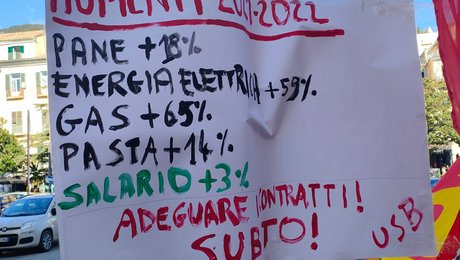 AUMENTI 2021-2022
PANE +18%
ENERGIA ELETTRICA +59%
GAS +65%
PASTA +14%
SALARIO +3%
ADEGUARE I CONTRATTI!
SUBTO!
USB